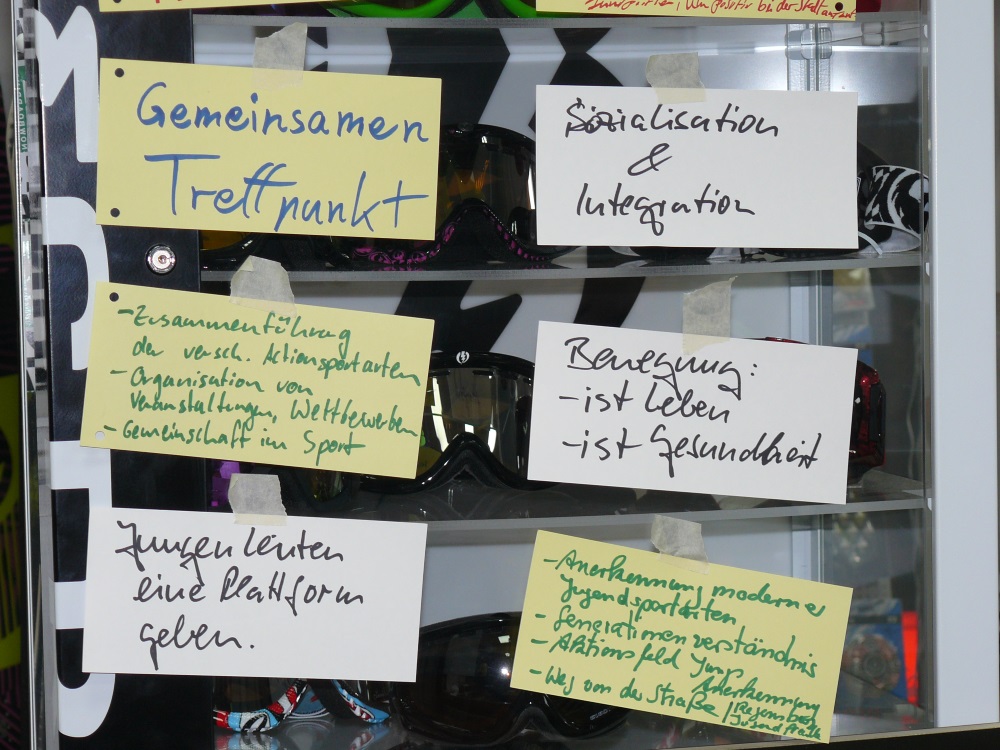 Gemeinsamen
Treffpunkt
Sozialisation
&
Integration
- Zusammenführung
der versch. Actionsportarten
- Organisation von
Veranstaltungen, Wettbewerben
- Gemeinschaft im Sport
Bewegung:
- ist Leben
- ist Gesundheit
Jungen Leuten
eine Plattform
geben.
- Anerkennung moderner
Jugendsportarten
- Generationenverständnis
- Aktionsfeld Jungs
Anerkennung
- Weg von der Straße /